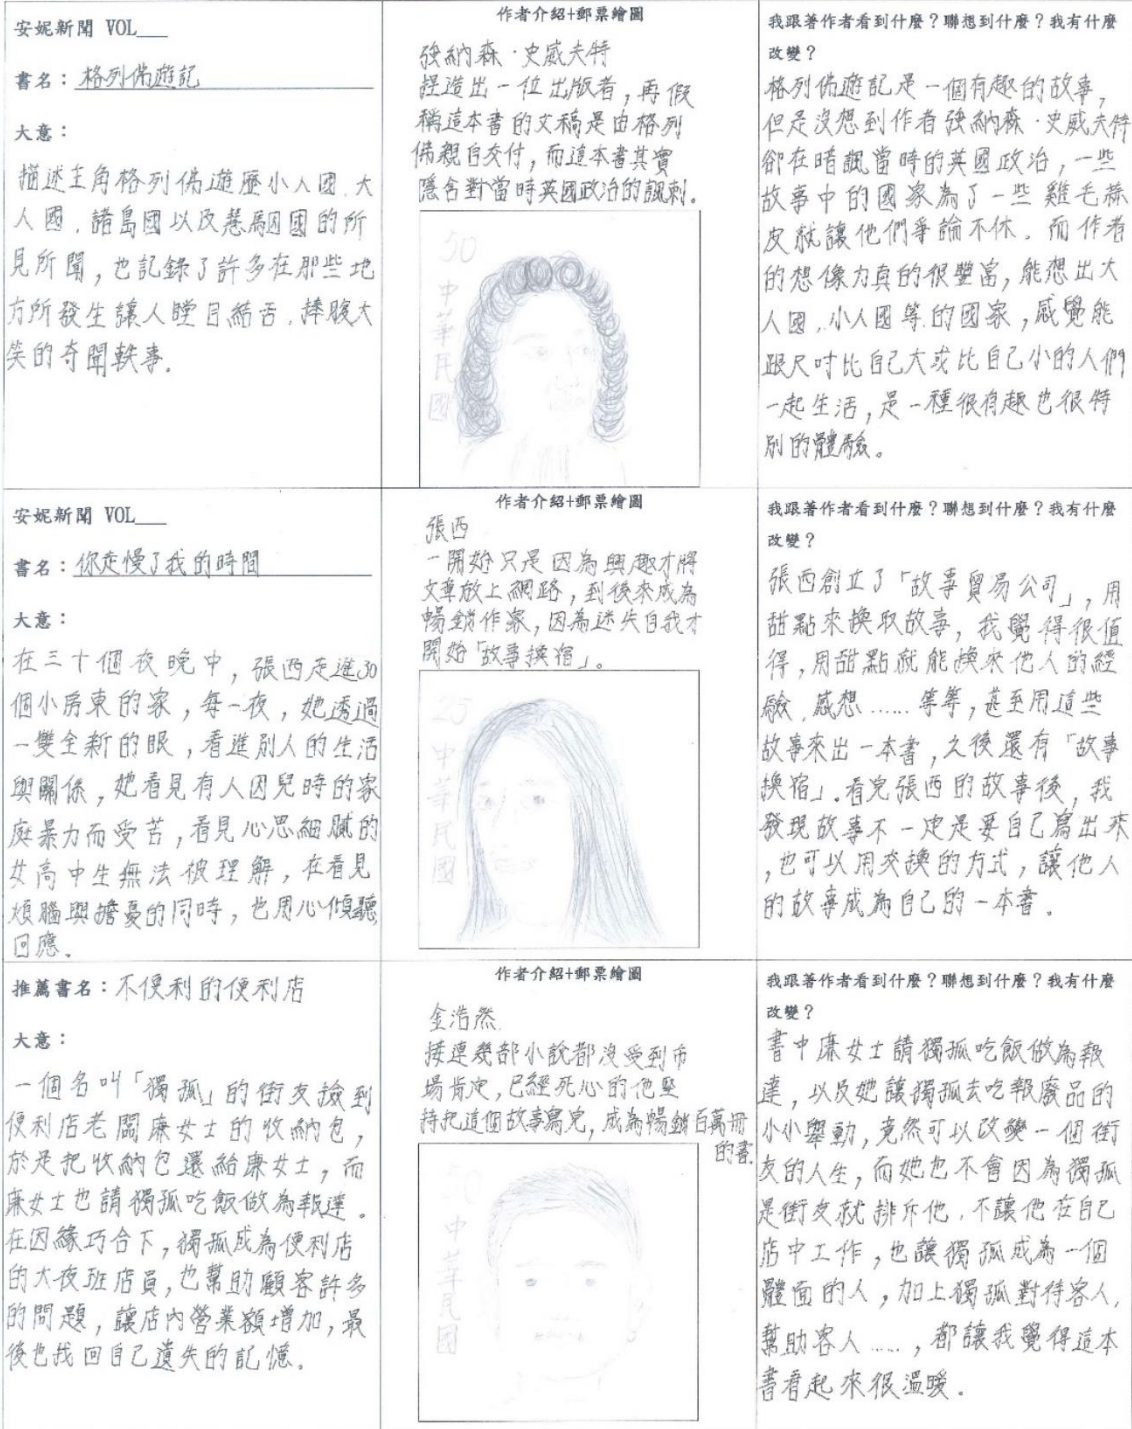 安妮新聞 VOL___
書名：格列佛遊記
大意：
描述主角格列佛遊歷小人國、大
人國、諸島國以及慧駰國的所
見所聞，也記錄了許多在那些地
方所發生讓人瞠目結舌、捧腹大
笑的奇聞軼事。
作者介紹+郵票繪圖
強納森·史威夫特
捏造出一位出版者，再假
稱這本書的文稿是由格列
佛親自交付，而這本書其實
隱含對當時英國政治的諷刺。
50
中華民國
我跟著作者看到什麼？聯想到什麼？我有什麼
改變？
格列佛遊記是一個有趣的故事，
但是沒想到作者強納森·史威夫特
卻在暗諷當時的英國政治，一些
故事中的國家為了一些雞毛蒜
皮就讓他們爭論不休。而作者
的想像力真的很豐富，能想出大
人國、小人國等的國家，感覺能
跟尺吋比自己大或比自己小的人們
一起生活，是一種很有趣也很特
別的體驗。
安妮新聞 VOL___
書名：你走慢了我的時間
大意：
在三十個夜晚中，張西走進30
個小房東的家，每一夜，她透過
一雙全新的眼，看進別人的生活
與關係，她看見有人因兒時的家
庭暴力而受苦，看見心思細膩的
女高中生無法被理解，在看見
煩腦與擔憂的同時，也用心傾聽
回應。
作者介紹+郵票繪圖
張西
一開始只是因為興趣才將
文章放上網路，到後來成為
暢銷作家，因為迷失自我才
開始「故事換宿」。
25
中華民國
我跟著作者看到什麼？聯想到什麼？我有什麼
改變？
張西創立了「故事貿易公司」，用
甜點來換取故事，我覺得很值
得，用甜點就能換來他人的經
驗、感想……等等，甚至用這些
故事來出一本書，之後還有「故事
換宿」。看完張西的故事後，我
發現故事不一定是要自己寫出來
，也可以用交換的方式，讓他人
的故事成為自己的一本書。
推薦書名：不便利的便利店
大意：
一個名叫「獨孤」的街友撿到
便利店老闆廉女士的收納包，
於是把收納包還給廉女士，而
廉女士也請獨孤吃飯做為報達。
在因緣巧合下，獨孤成為便利店
的大夜班店員，也幫助顧客許多
的問題，讓店內營業額增加，最
後也找回自己遺失的記憶。
作者介紹+郵票繪圖
金浩然
接連幾部小說都沒受到市
場肯定，已經死心的他堅
持把這個故事寫完，成為暢銷百萬冊
的書。
中華民國
我跟著作者看到什麼？聯想到什麼？我有什麼
改變？
書中廉女士請獨孤吃飯做為報
達，以及她讓獨孤去吃報廢品的
小小舉動，竟然可以改變一個街
友的人生，而她也不會因為獨孤
是街友就排斥他、不讓他在自己
店中工作，也讓獨孤成為一個
體面的人，加上獨孤對待客人、
幫助客人……，都讓我覺得這本
書看起來很溫暖。